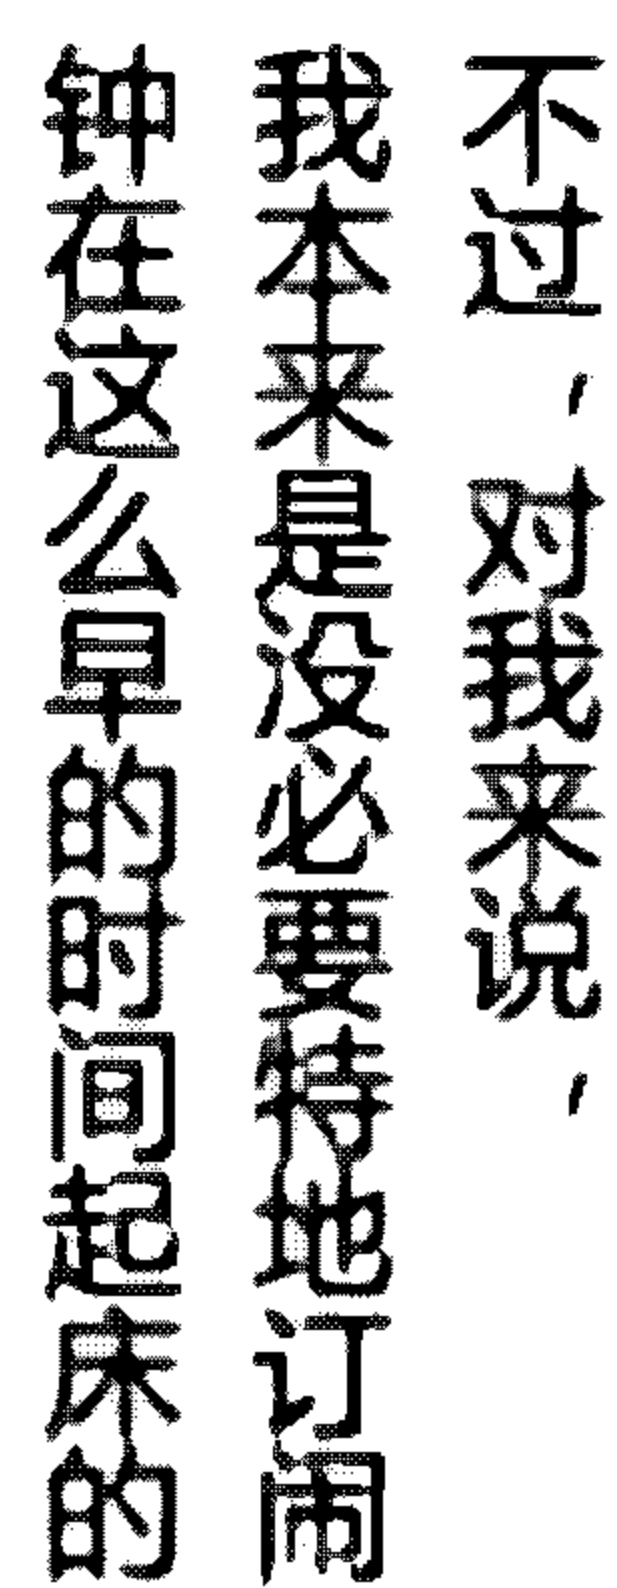 不过，对我来说，
我本来是没必要特地订闹
钟在这么早的时间起床的